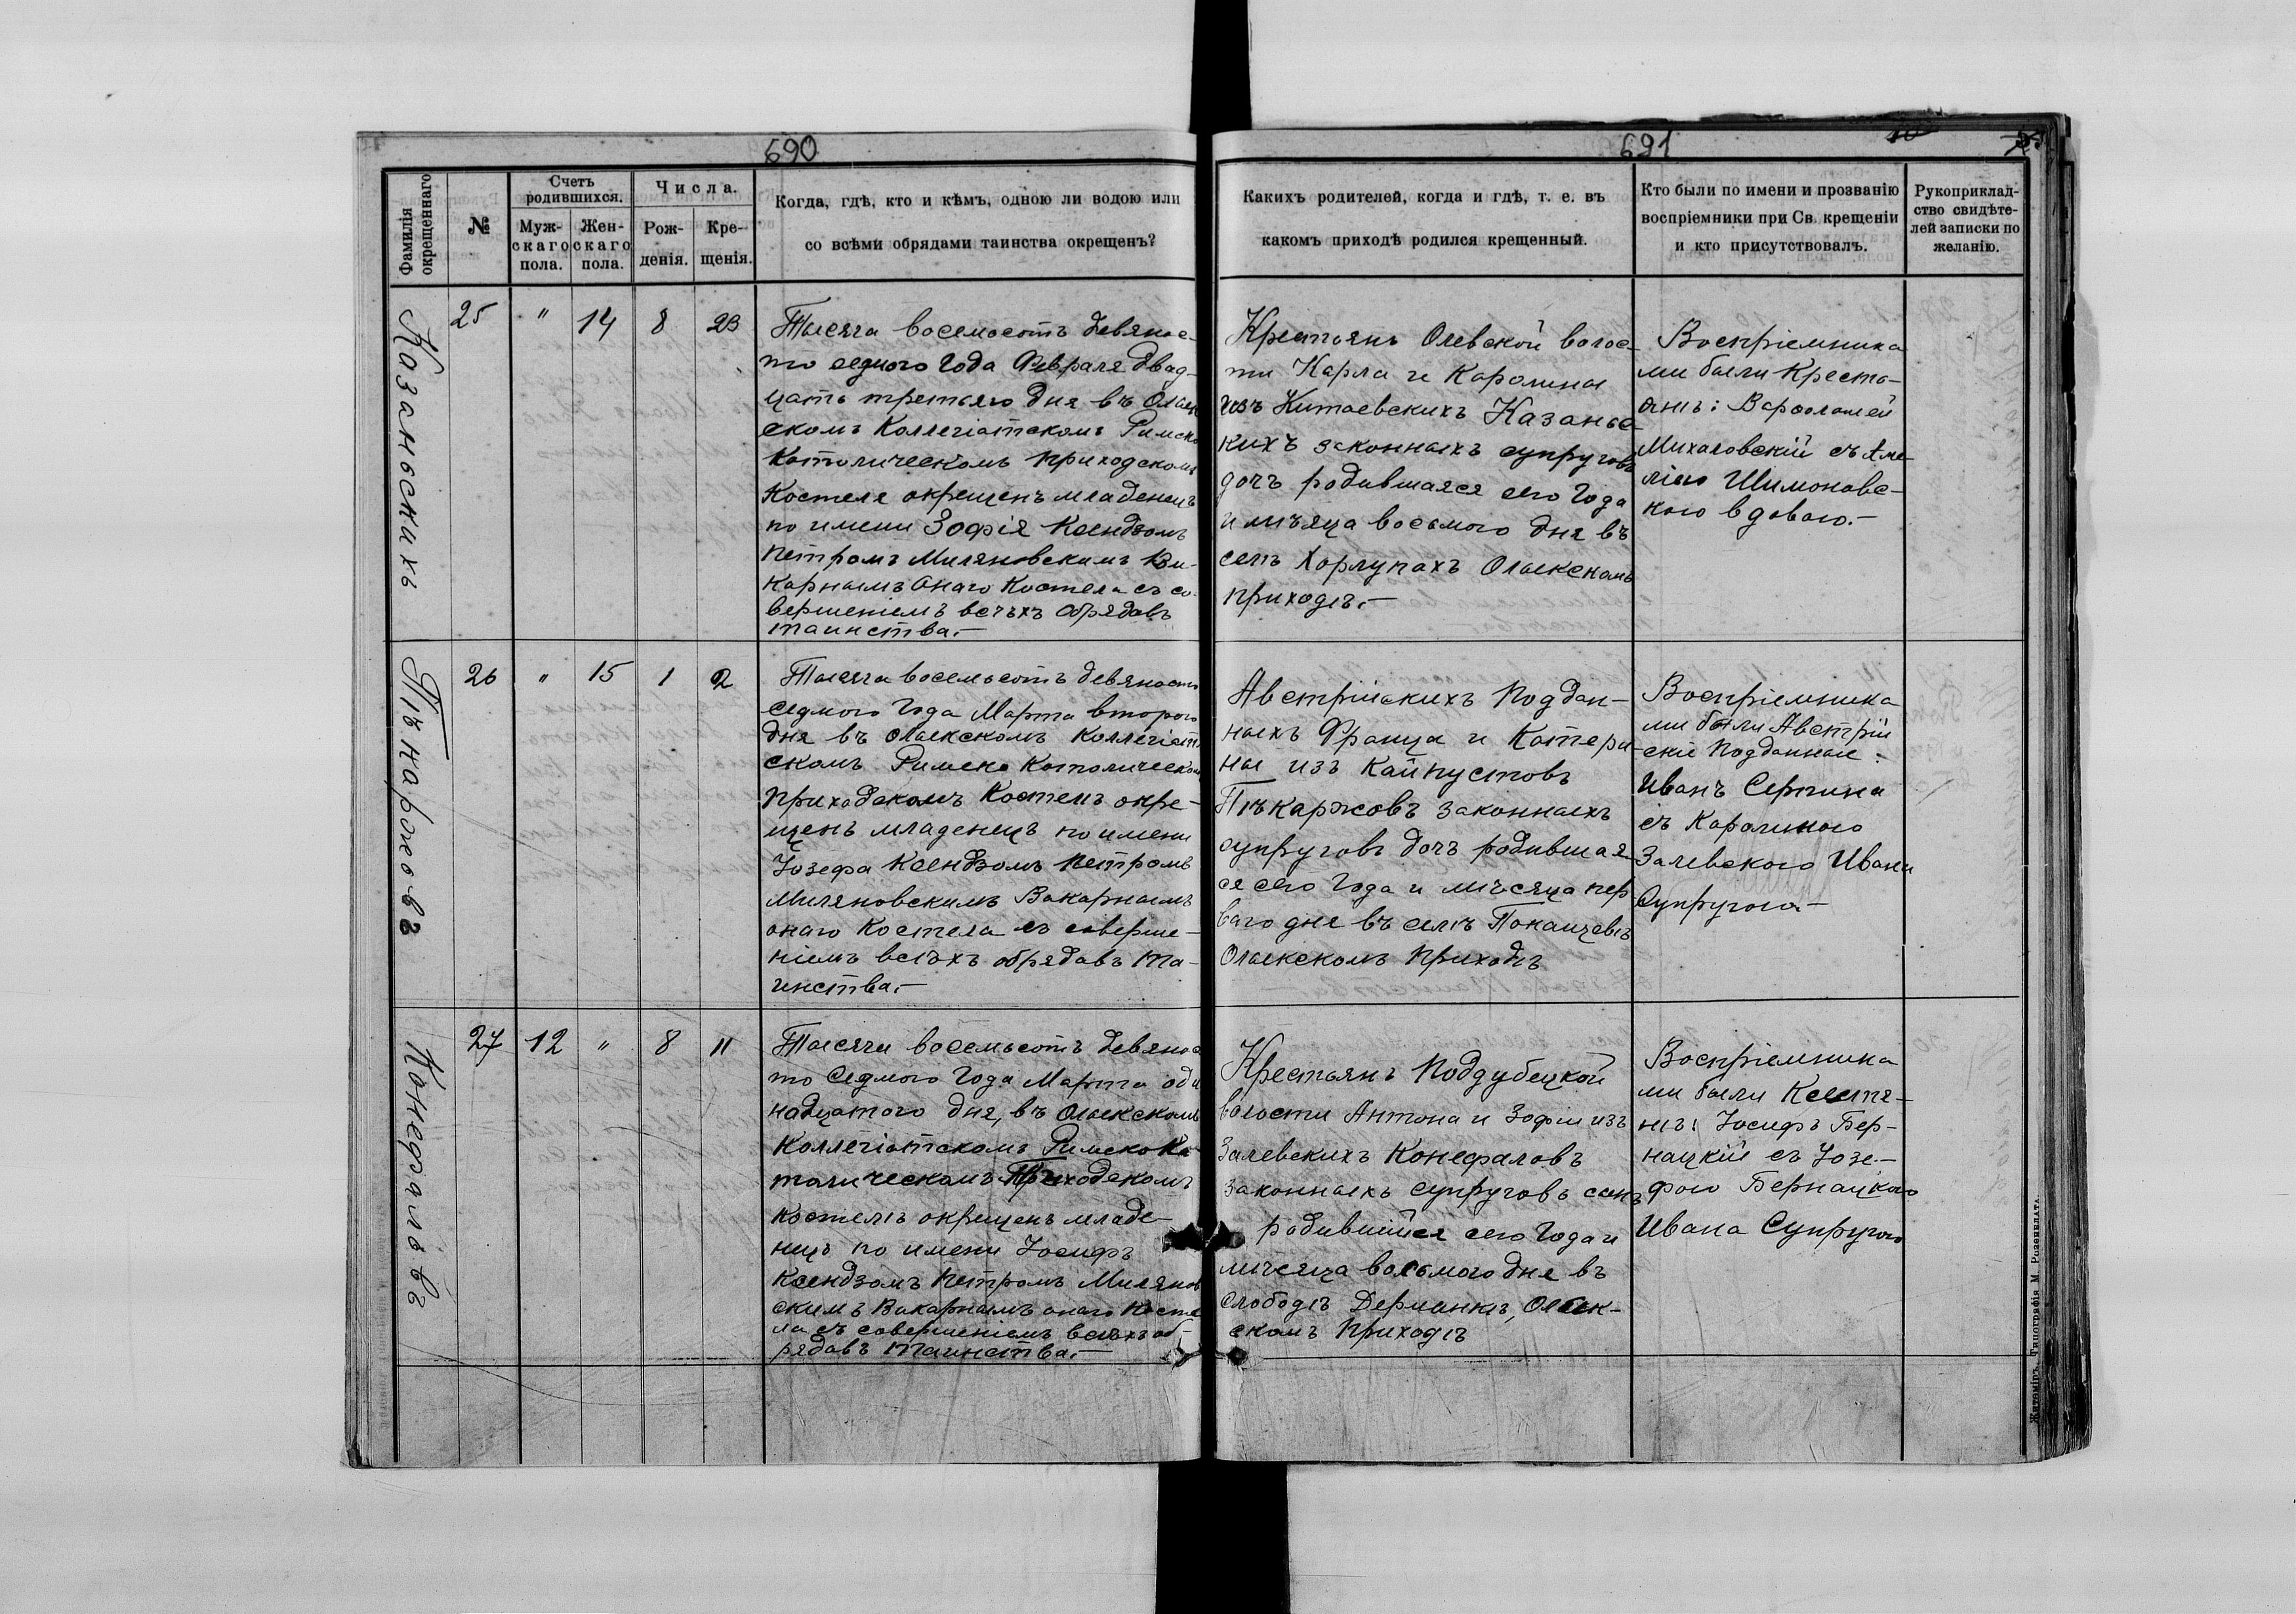 690
Фамилія окрещеннаго
№
Счетъ родившихся.
Мужскаго пола.
Женскаго пола.
Числа.
Рожденія.
Крещенія.
Когда, гдѣ, кто и кѣмъ, одною ли водою или
со всѣми обрядами таинства окрещенъ?
Казаньскихъ
25 " 14 8 23
Тысяча восемьсотъ девянос-
то седмого Года Февраля двад-
цать третьяго дня въ Олык
скомъ Коллегіатскомъ Римско
Католическомъ приходскомъ
Костеле окрещенъ младенецъ
по имени Зофія Ксендзомъ
Петромъ Миляновскимъ Ви-
карнымъ Онаго Костела съ со-
вершеніемъ всѣхъ обрядовъ
таинства.—
Пѣкаржовъ
26 " 15 1 2
Тысяча восемьсотъ девяносто
седмого Года Марта второго
дня въ Олыкскомъ Коллегіат
скомъ Римско Католическом
приходскомъ Костелѣ окре-
щенъ младенецъ по имени
Іозефа Ксендзомъ Петромъ
Миляновскимъ Викарнымъ
онаго Костела съ соверше-
ніемъ всѣхъ обрядовъ та-
инства.—
Конефаловъ
27 12 " 8 11
Тысяча восемьсотъ девянос
то Седмого Года Марта оди
надцатого дня, въ Олыкскомъ
Коллегіатскомъ Римско Ка
толическомъ Приходскомъ
костелѣ окрещенъ младе-
нецъ по имени Іосифъ
Ксендзомъ Петромъ Милянов
скимъ Викарнымъ онаго Косте
ла съ совершеніемъ всѣхъ об-
рядовъ таинства.—
691
Какихъ родителей, когда и гдѣ, т. е. въ
какомъ приходѣ родился крещенный.
Кто были по имени и прозванію
воспріемники при Св. крещеніи
и кто присутствовалъ.
Рукоприклад-
ство свидѣте-
лей записки по
желанію.
Крестьянъ Олевской волос-
ти Карла и Каролины
изъ Китаевскихъ Казаньс-
кихъ законныхъ супруговъ
дочъ родившаяся сего Года
и мѣсяца восьмого дня въ
селѣ Хорлупахъ Олыкскомъ
приходѣ.—
Воспріемника
ми были Кресть-
янъ: Варфоломей
Михаловскій съ Аме-
ліею Шимоновс-
кою вдовою.—
Австрійскихъ Поддан-
ныхъ Франца и Катери-
ны изъ Кайпустовъ
Пѣкаржовъ законныхъ
супруговъ дочъ родившая
ся сего Года и мѣсяца пер
ваго дня въ селѣ Покащевѣ
Олыкскомъ приходѣ
Воспріемника
ми были Австрій
скіе Подданные:
Иванъ Серпина
съ Каролиною
Залевскою Ивана
Супругою.—
Крестьянъ Поддубецкой
волости Антона и Зофіи изъ
Залевскихъ Конефаловъ
законныхъ супруговъ сынъ
родившійся сего Года и
мѣсяца восьмого дня въ
Слободѣ Дерманкѣ, Олык-
скомъ приходѣ
Воспріемника
ми были Кестя-
нъ: Іосифъ Бер-
нацкій съ Іозе-
фою Бернацкою
Ивана Супругою
Житоміръ. Типографія М. Розенблата.